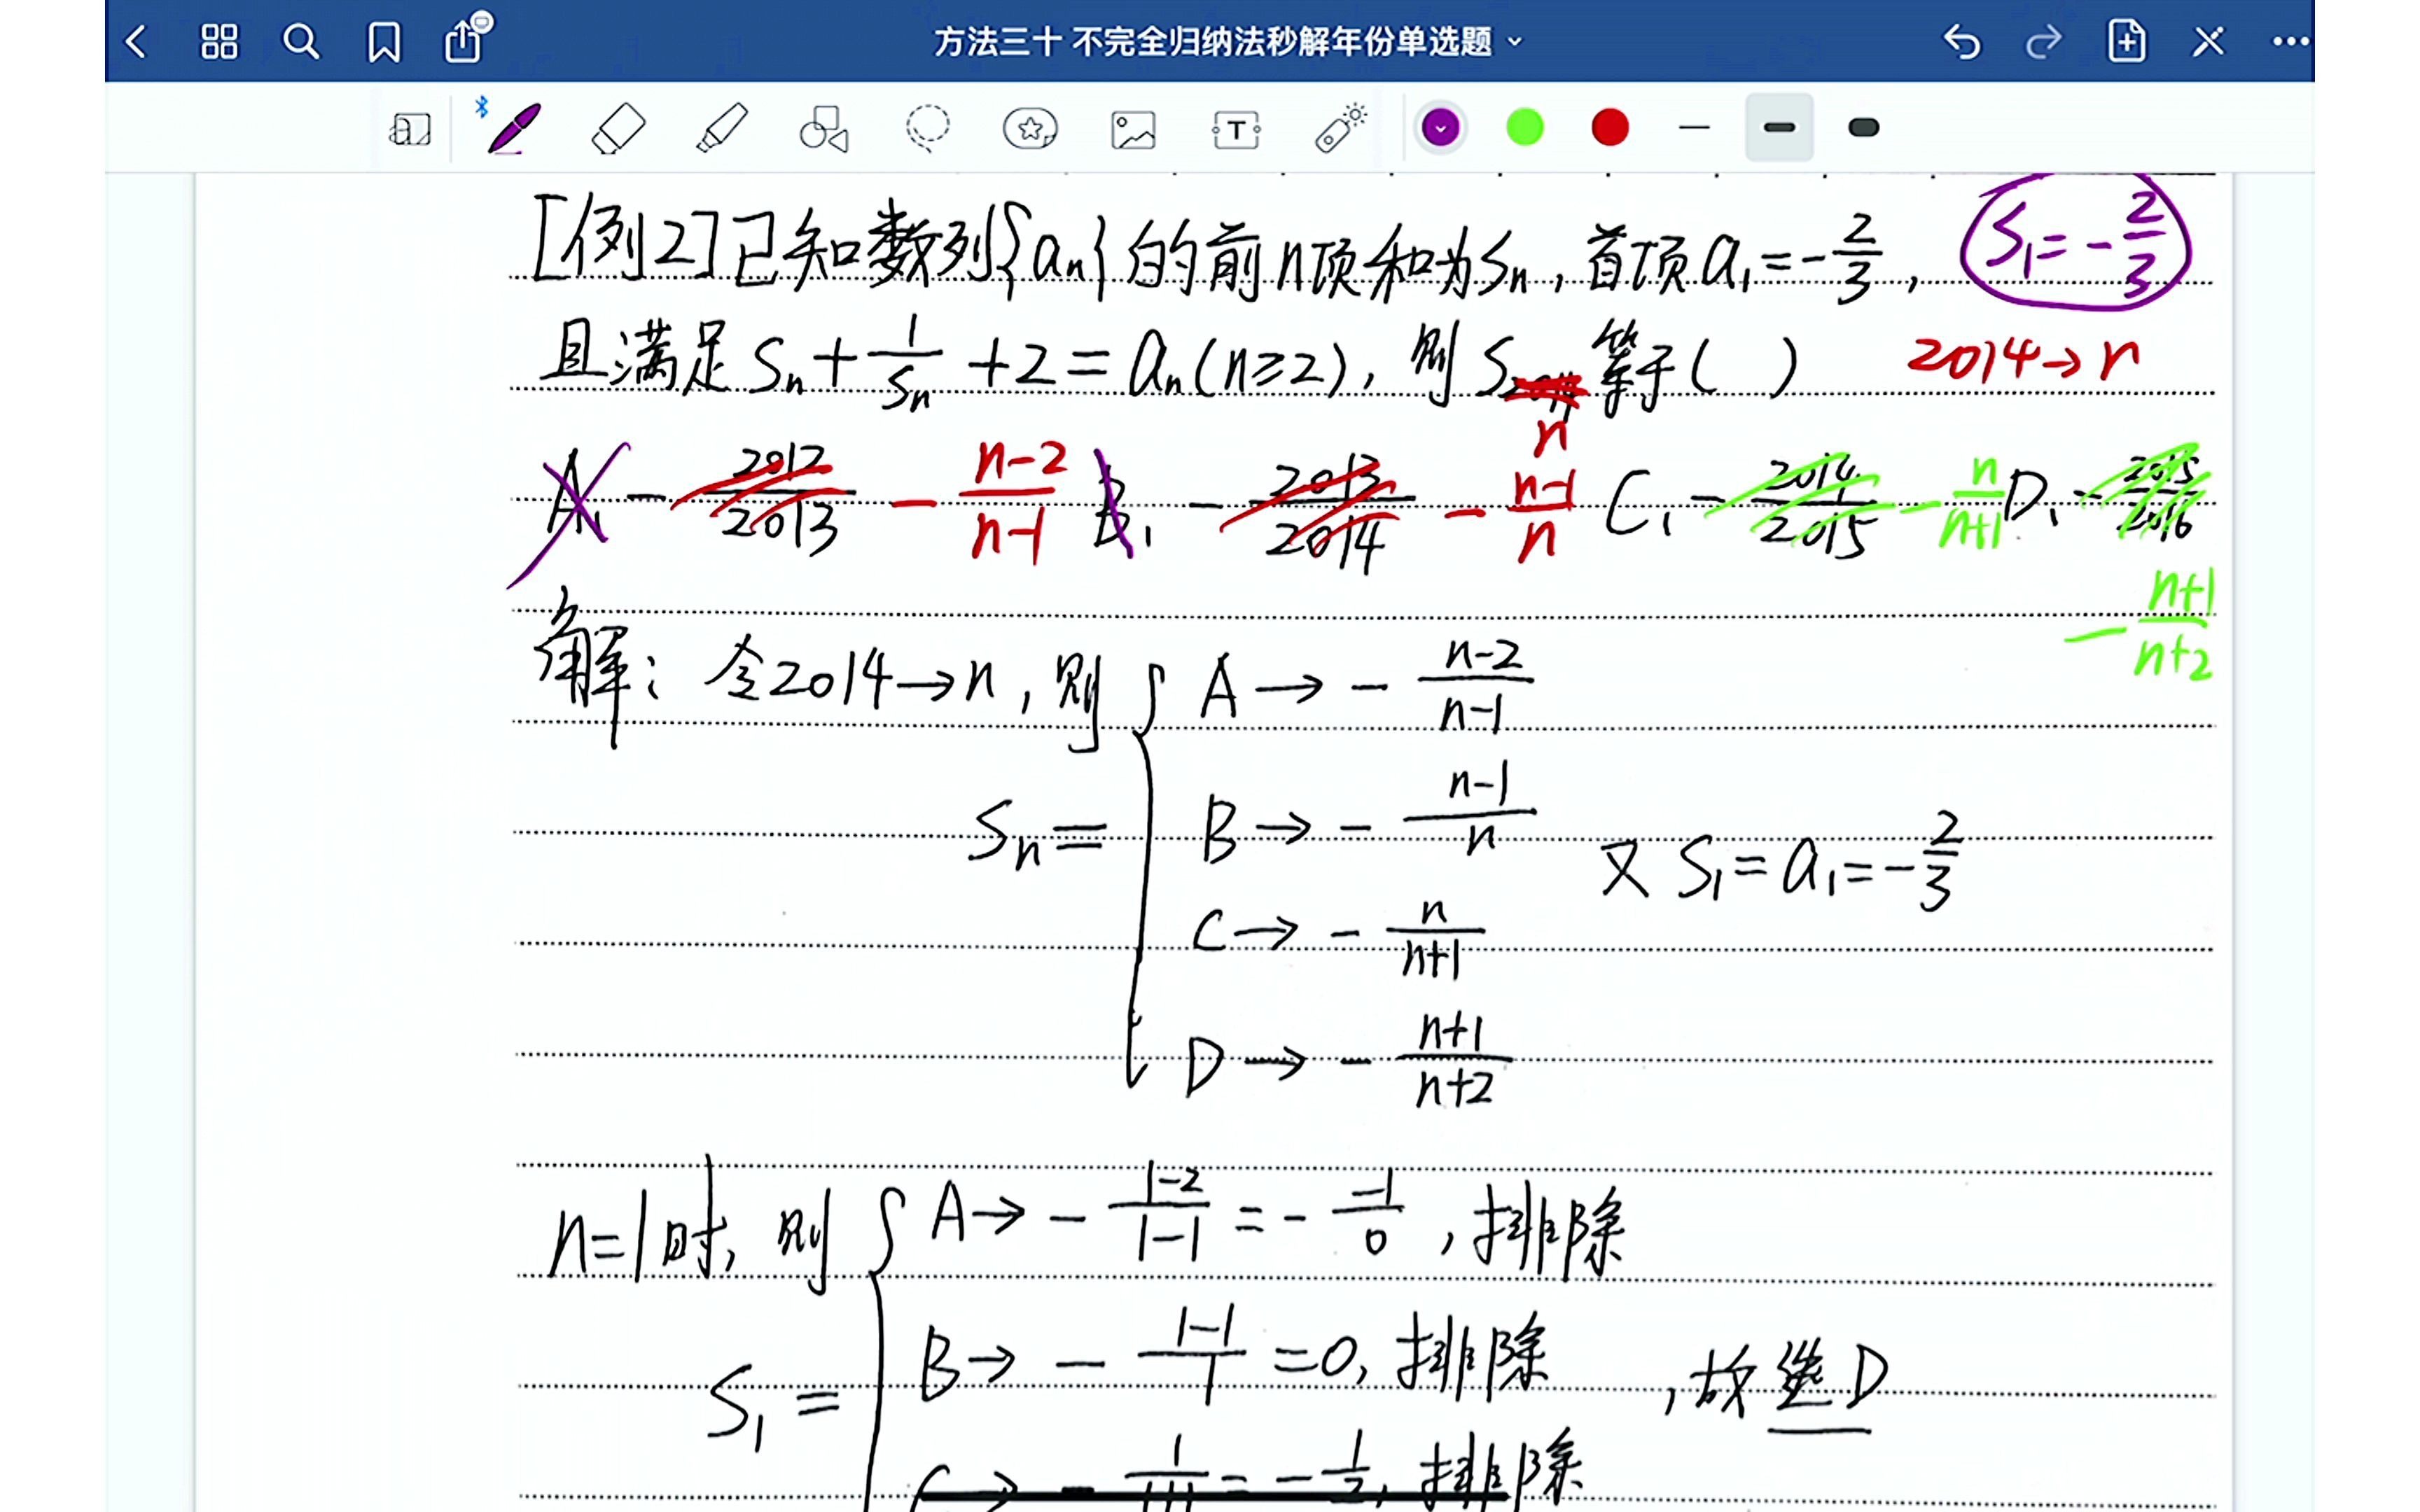 方法三十 不完全归纳法秒解年份单选题
[例2]已知数列{an}的前n项和为Sn,首项a1=-2/3, S1=-2/3
且满足Sn+1/Sn+2=an(n≥2),则S2014等于( ) 2014→n
n
A. -2012/2013 -n-2/n-1 B. -2013/2014 -n-1/n C. -2014/2015 -n/n+1 D. -2015/2016
-n+1/n+2
解: 令2014→n,则 A→-n-2/n-1
Sn= B→-n-1/n 又S1=a1=-2/3
C→-n/n+1
D→-n+1/n+2
n=1时,则 A→-1-2/1-1=--1/0,排除
S1= B→-1-1/1=0,排除 ,故选D
C→-1/1+1=-1/2,排除